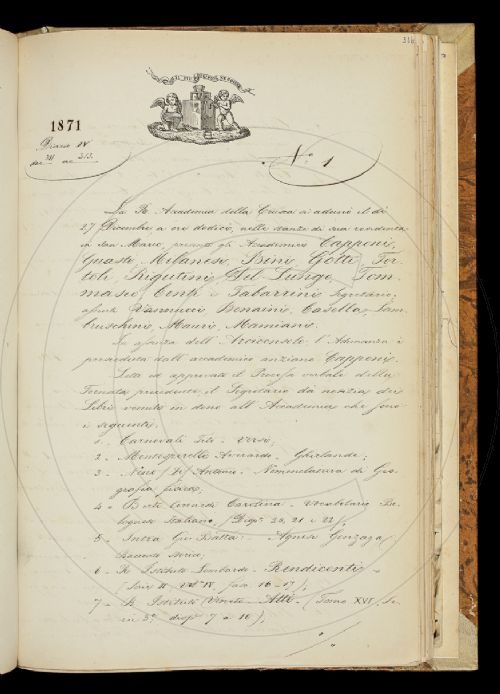 316
1871
N.° 1
La R. Accademia della Crusca si adunò il dì
27 Dicembre a ore dodici, nelle stanze di sua residenza
in San Marco, presenti gli Accademici Capponi,
Guasti, Milanesi, Bini, Gotti, Tor-
toli, Rigutini, Del Lungo, Tom-
maseo, Conti e Tabarrini Segretario;
assenti Vannucci, Bonaini, Casella, Lam-
bruschini, Mauri, Mamiani.
In assenza dell'Arciconsolo l'Adunanza è
presieduta dall'accademico anziano Capponi.
Letto ed approvato il Processo verbale della
Tornata precedente, il Segretario dà notizia dei
Libri venuti in dono all'Accademia che sono
i seguenti:
1 - Carnevali Tito - Versi;
2 - Averardo - Ghirlande;
3 - Antonio - Nomenclatura di Geo-
grafia fisica;
4 - Carolina - Vocabolario Bo-
lognese Italiano (Disp.e 20, 21 e 22);
5 - Intra Gio: Batta: Agnese Gonzaga,
Racconto storico;
6 - R. Istituto Lombardo - Rendiconti,
(Serie II Vol. IV fasc. 16-17);
7 - R. Istituto Veneto - Atti - (Tomo XVI, Se-
rie 3.a disp.e 7 a 10);